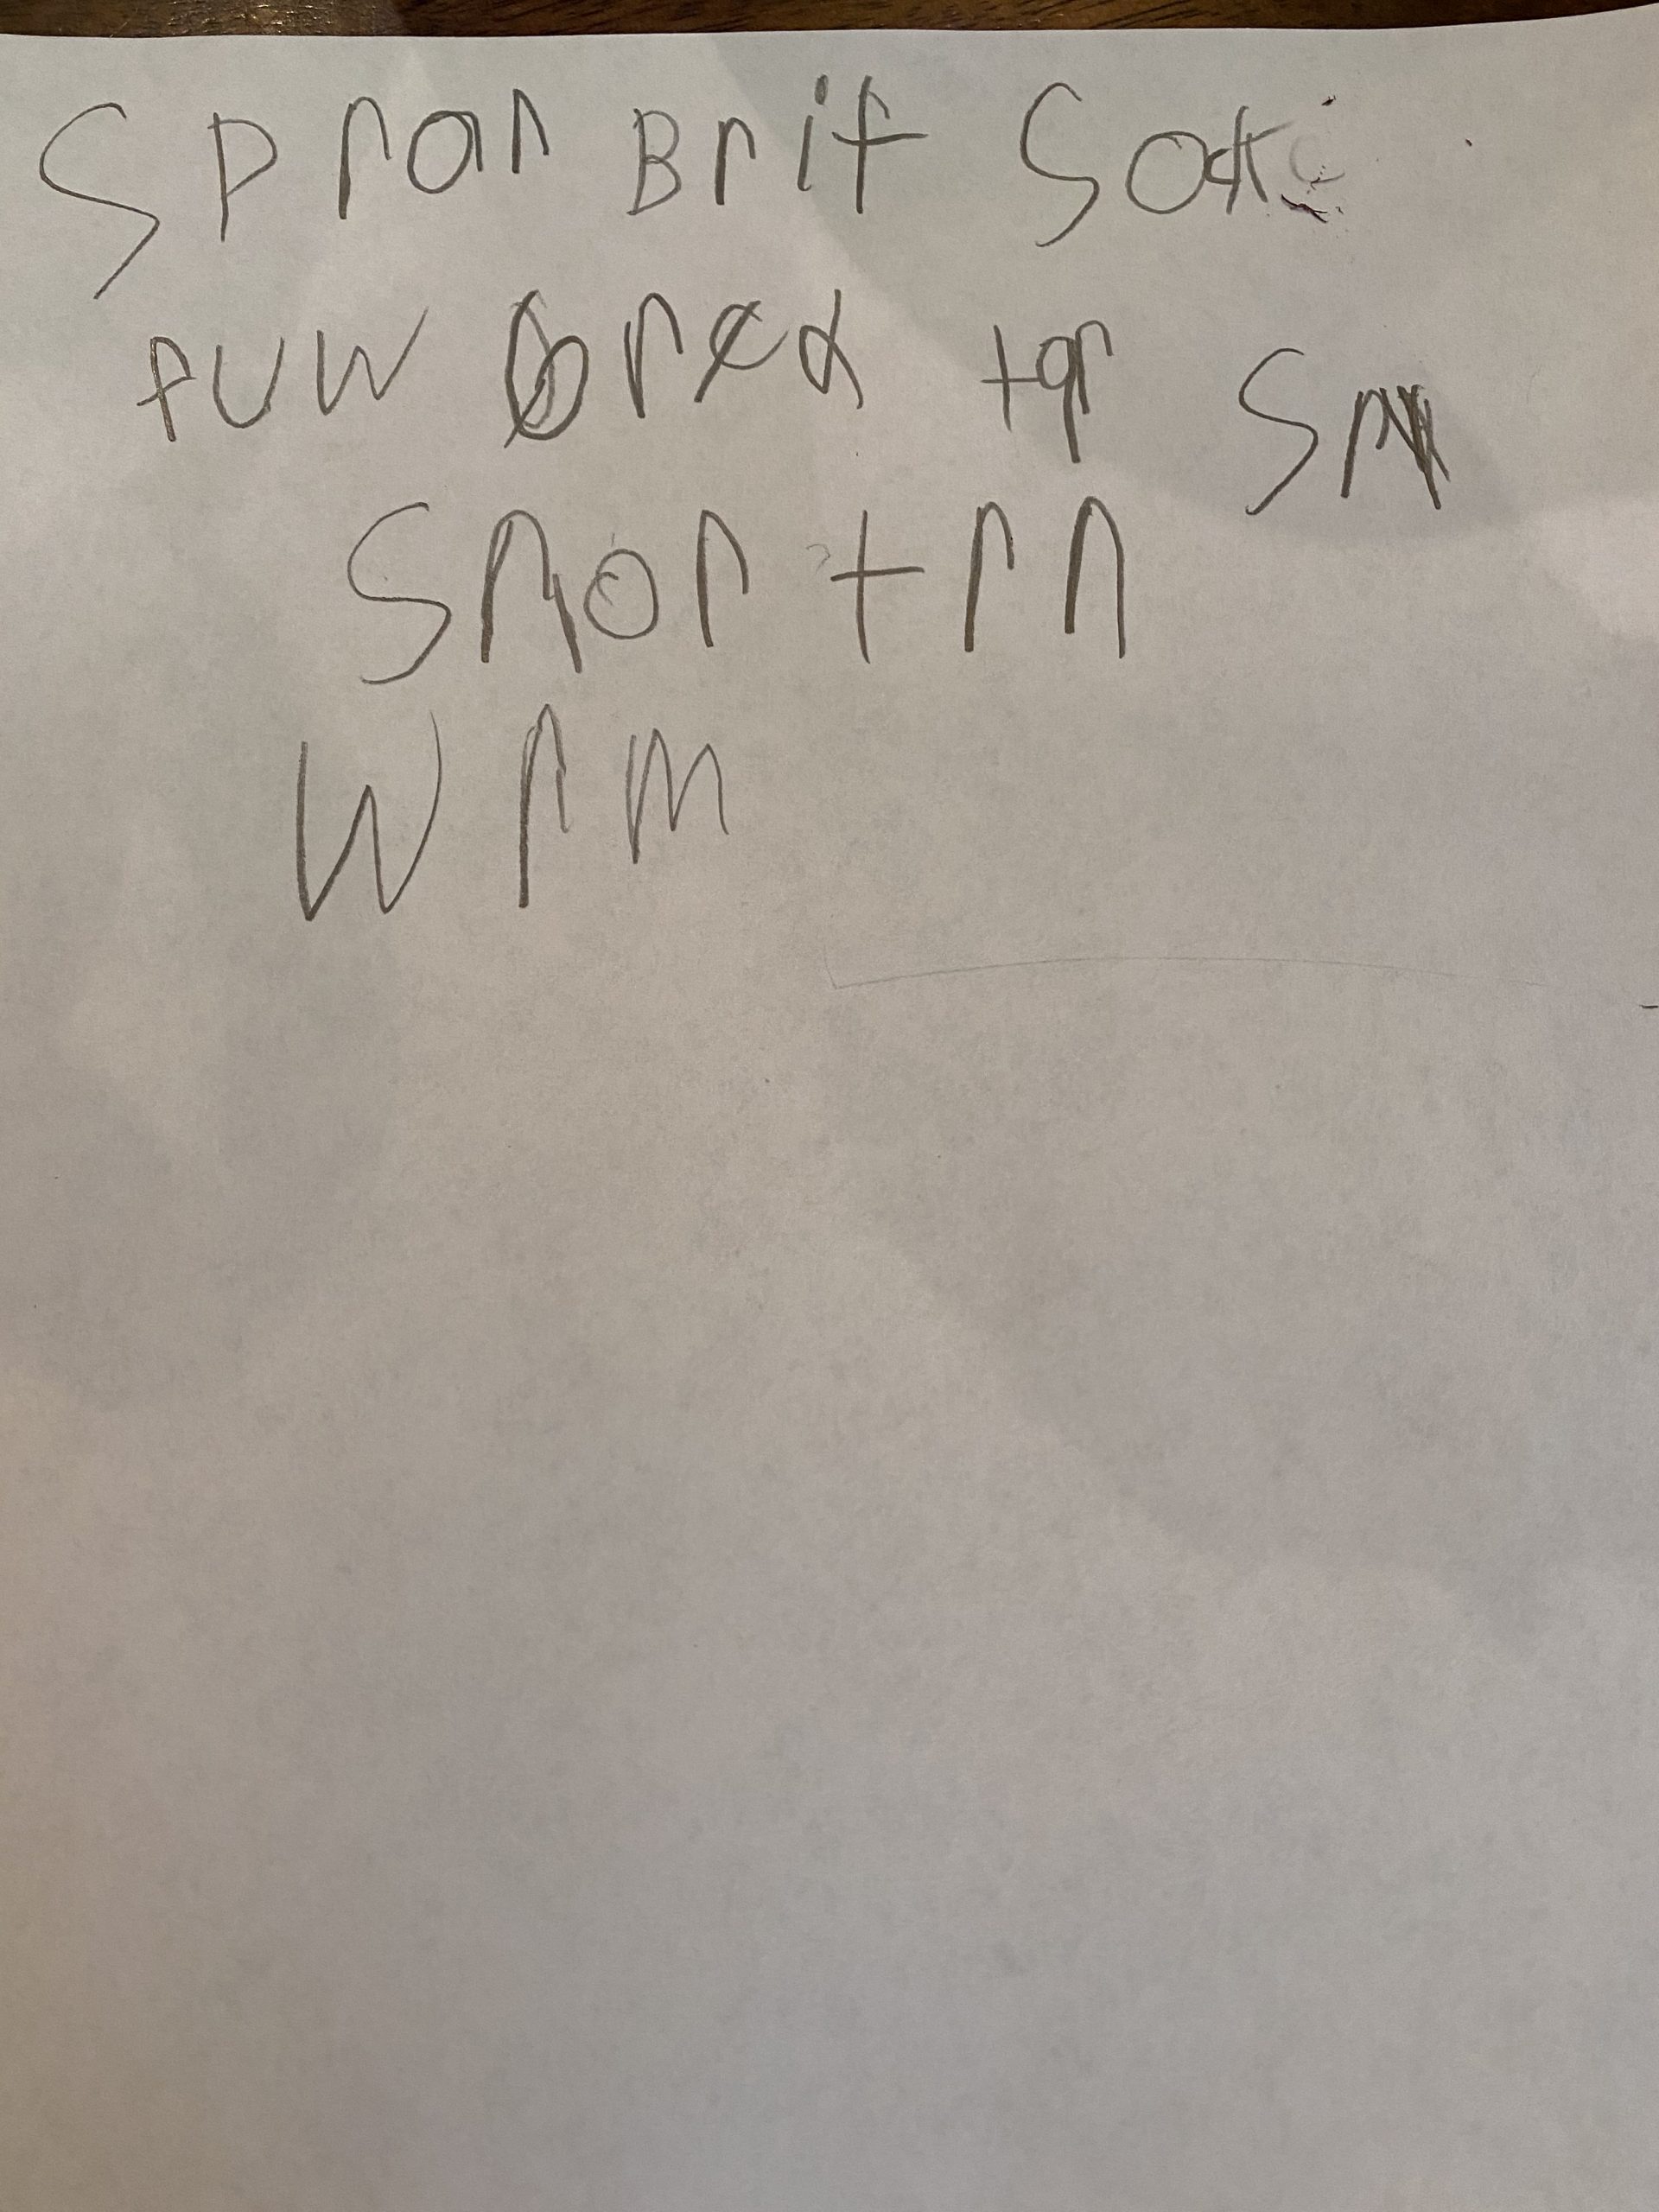 Sprar Brit Sok
fuw brex tqr Sn
Snor trn
wrm